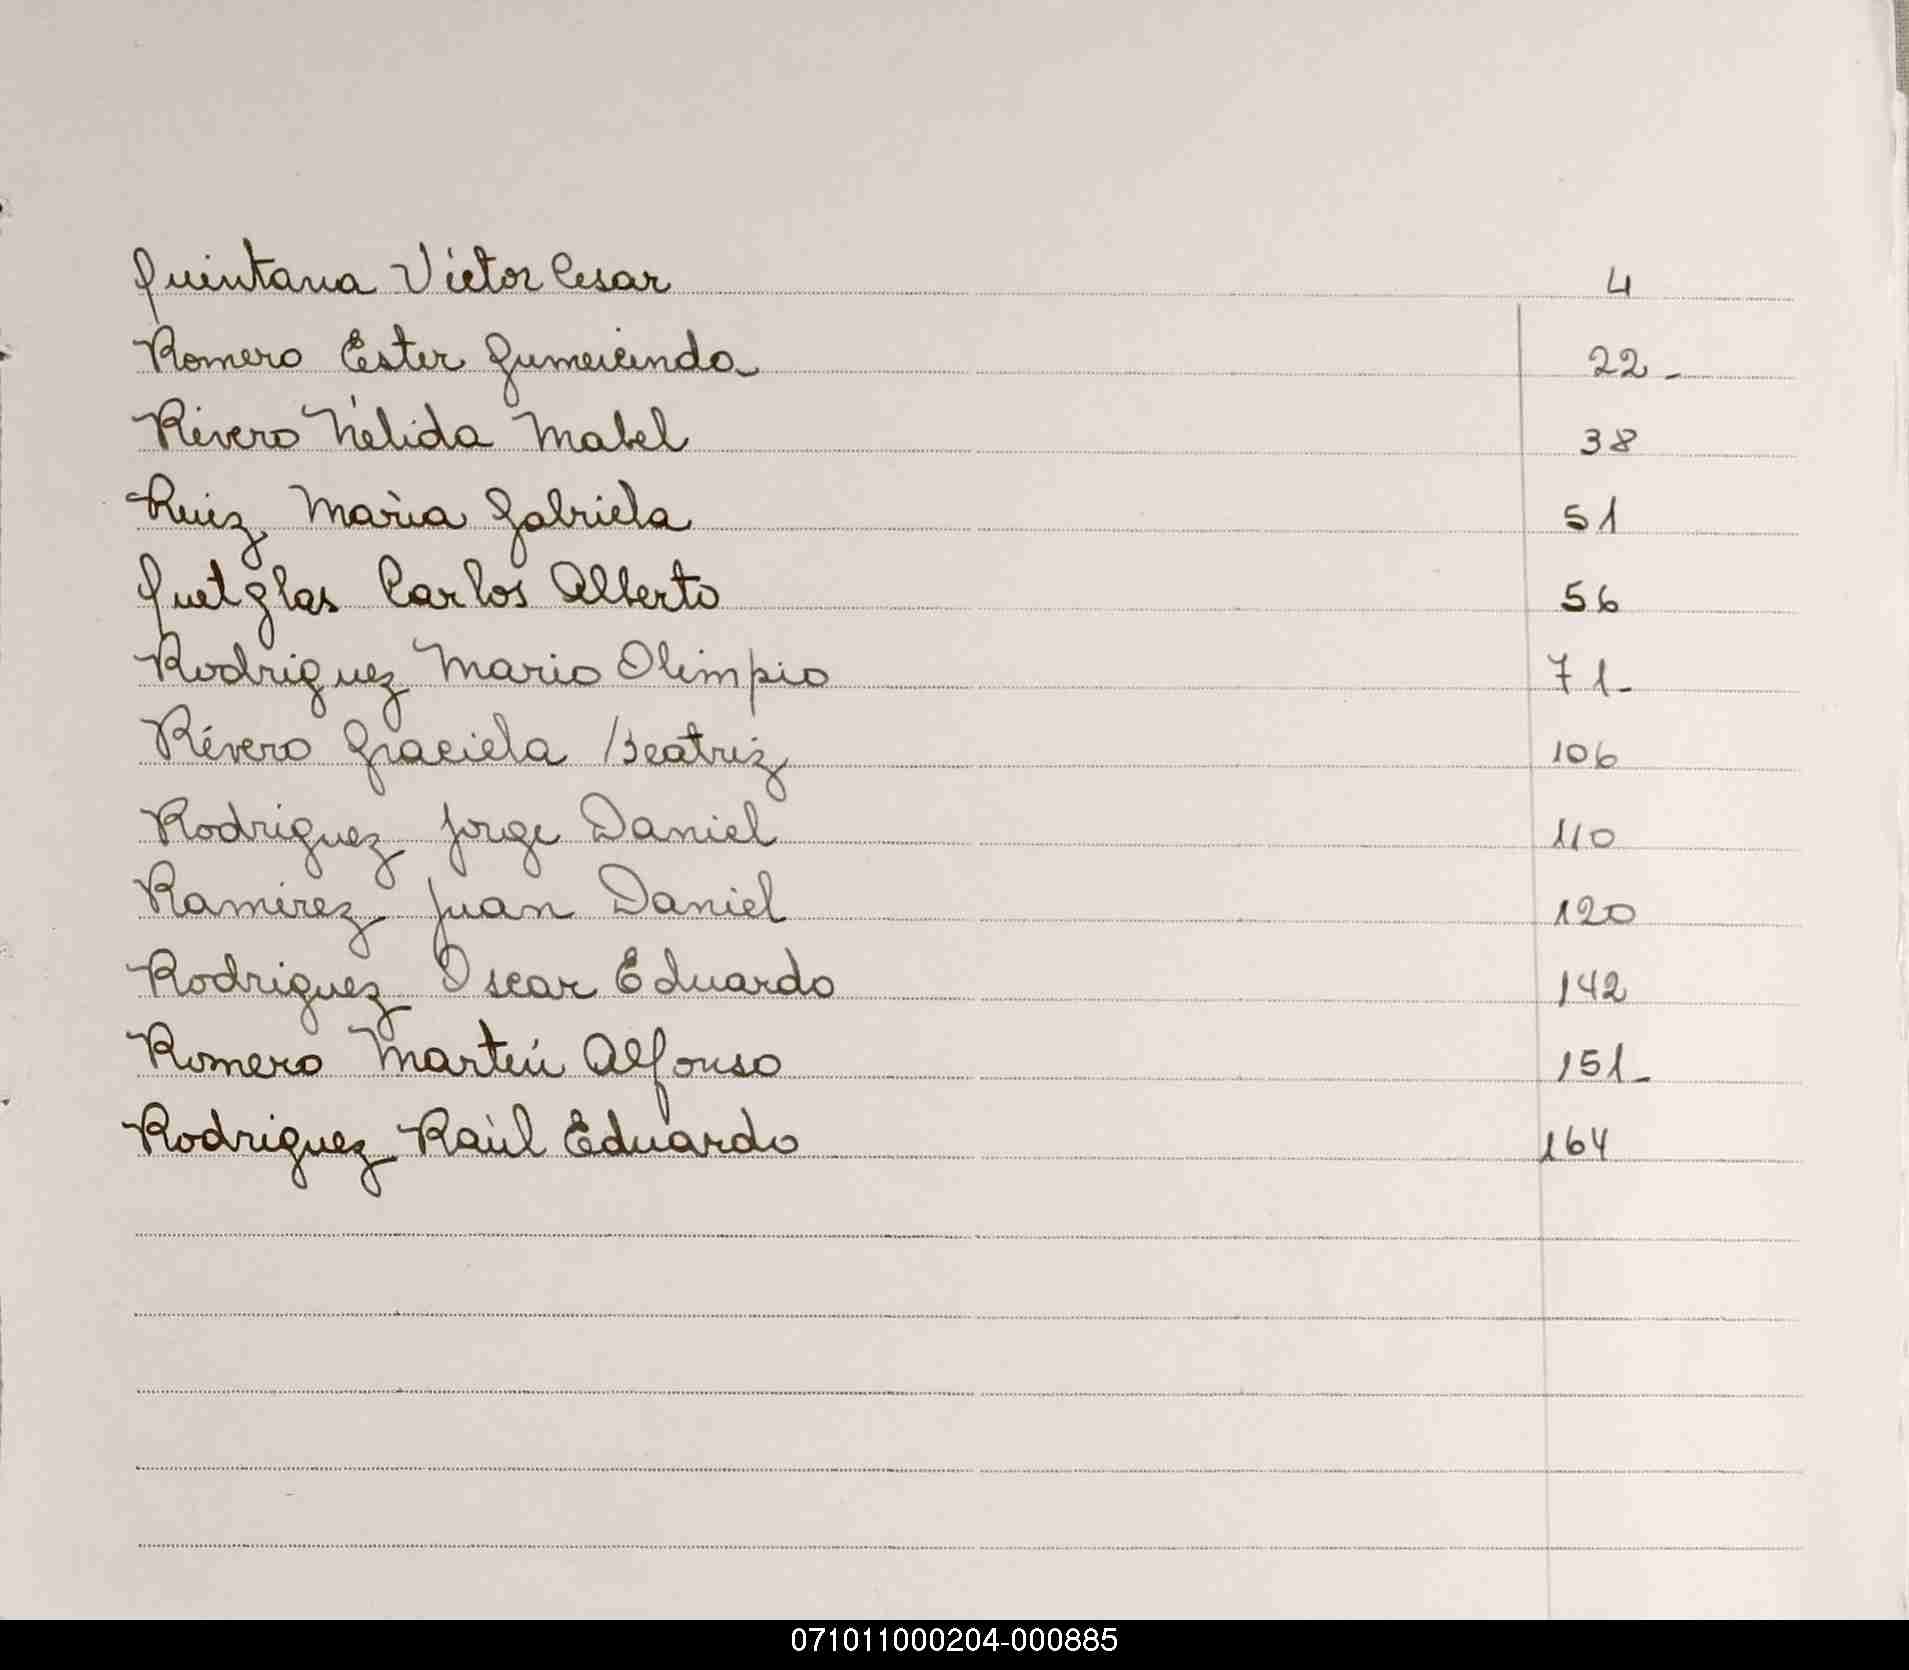 Quintana Victor Cesar 4
Romero Ester Gumercinda 22-
Rivero Nélida Mabel 38
Ruiz Maria Gabriela 51
Quetglas Carlos Alberto 56
Rodriguez Mario Olimpio 71-
Rivero Graciela Beatriz 106
Rodriguez Jorge Daniel 110
Ramirez Juan Daniel 120
Rodriguez Oscar Eduardo 142
Romero Martin Alfonso 151-
Rodriguez Raúl Eduardo 164
071011000204-000885